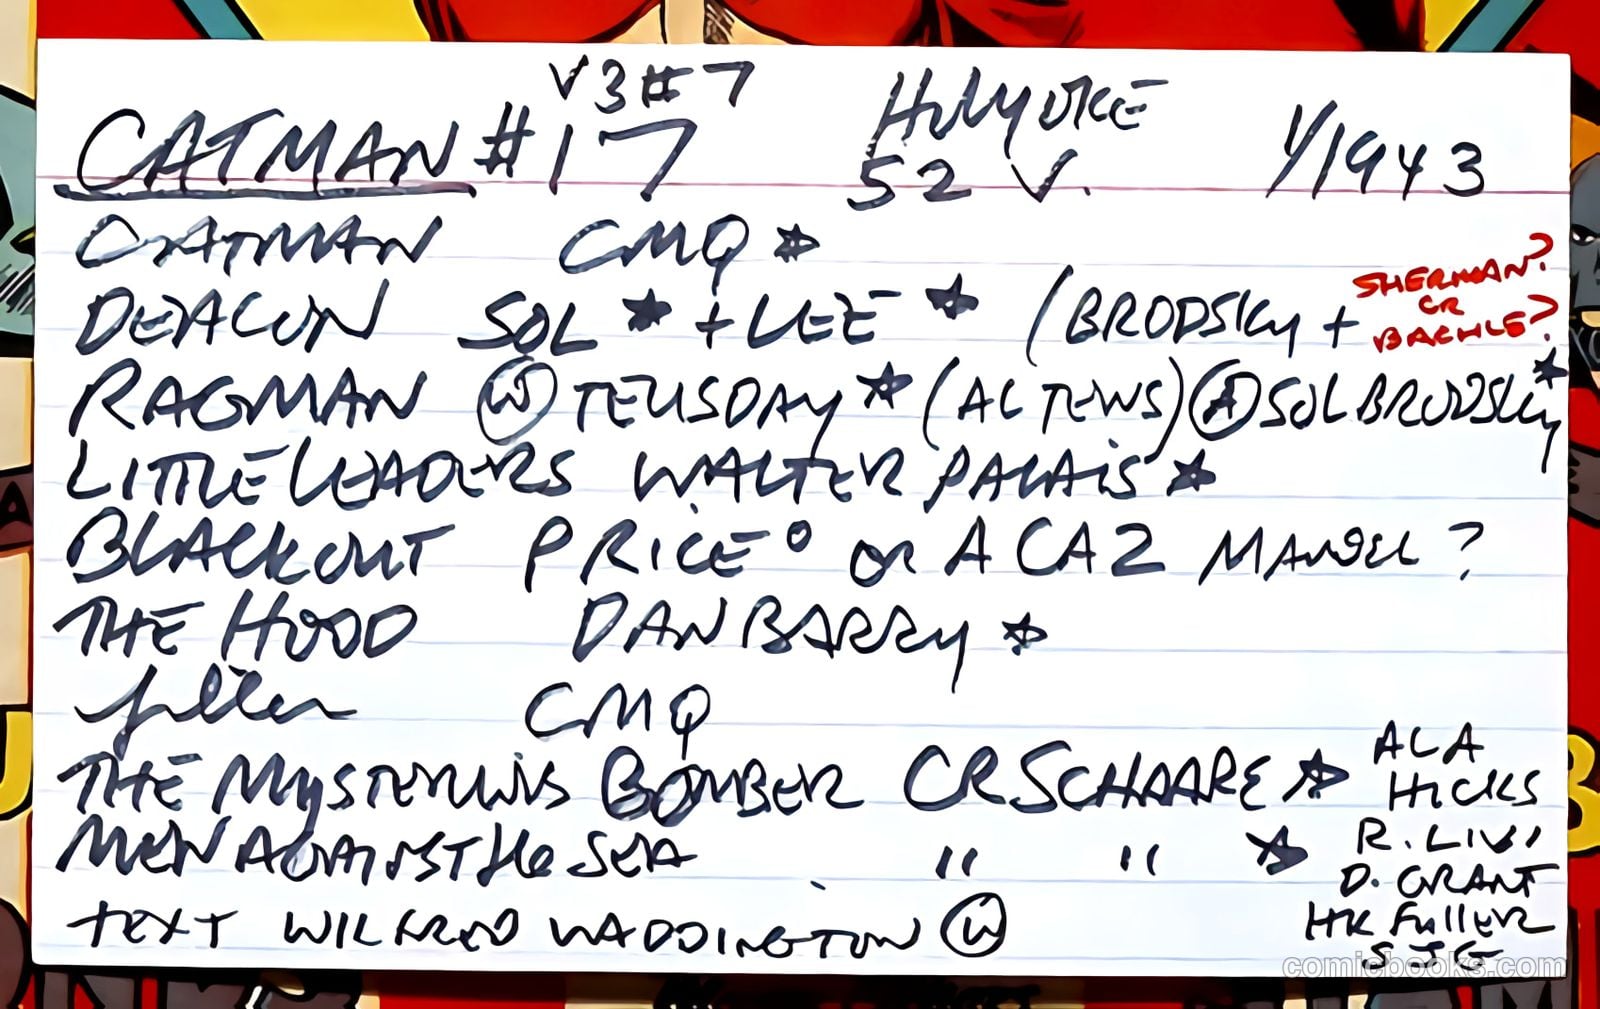 V3#7
CATMAN #17 HOLYOKE 52 V. 1/1943
CATMAN CMQ ☆
DEACON SOL ★ + LEE ★ (BRODSKY + SHERMAN? OR BACHLE?
RAGMAN Ⓦ TEUSDAY ★ (AL TEWS) Ⓐ SOL BRODSKY ★
LITTLE LEADERS WALTER PALAIS ★
BLACKOUT PRICE° OR ACA 2 MANUEL?
THE HOOD DAN BARRY ☆
filler CMQ
THE MYSTERIOUS BOMBER CR SCHAARE ☆
MEN AGAINST the SEA " " ☆
TEXT WILFRED WADDINGTON Ⓦ
ACA
HICKS
R. LIVI
D. GRANT
HK FULLER
SJG
comicbooks.com